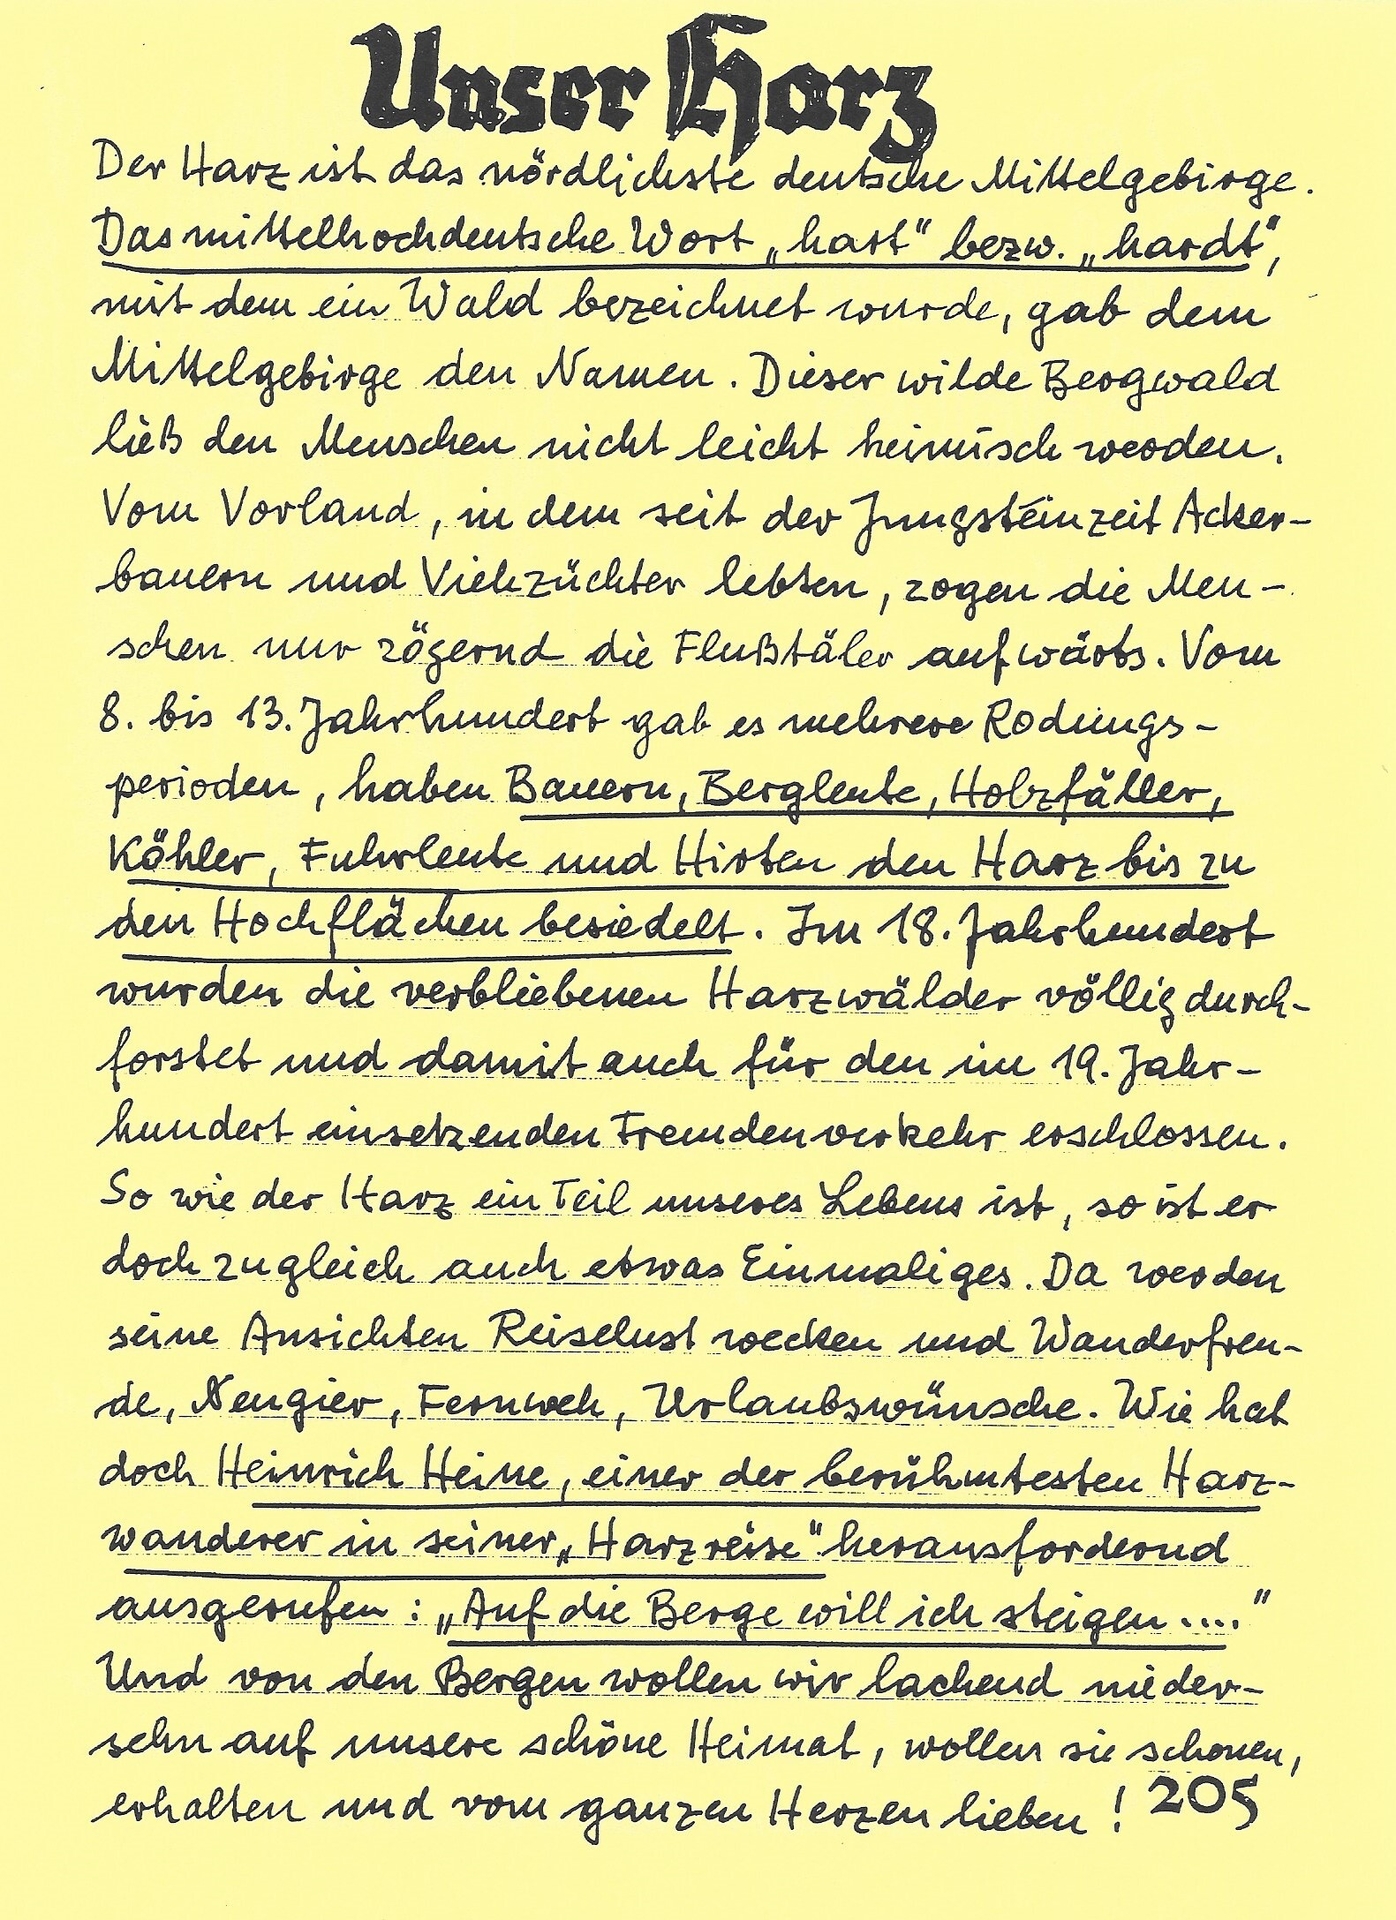 Unser Harz
Der Harz ist das nördlichste deutsche Mittelgebirge.
Das mittelhochdeutsche Wort „hart" bezw. „hardt",
mit dem ein Wald bezeichnet wurde, gab dem
Mittelgebirge den Namen. Dieser wilde Bergwald
ließ den Menschen nicht leicht heimisch werden.
Vom Vorland, in dem seit der Jungsteinzeit Acker-
bauern und Viehzüchter lebten, zogen die Men-
schen nur zögernd die Flußtäler aufwärts. Vom
8. bis 13. Jahrhundert gab es mehrere Rodungs-
perioden, haben Bauern, Bergleute, Holzfäller,
Köhler, Fuhrleute und Hirten den Harz bis zu
den Hochflächen besiedelt. Im 18. Jahrhundert
wurden die verbliebenen Harzwälder völlig durch-
forstet und damit auch für den im 19. Jahr-
hundert einsetzenden Fremdenverkehr erschlossen.
So wie der Harz ein Teil unseres Lebens ist, so ist er
doch zugleich auch etwas Einmaliges. Da werden
seine Ansichten Reiselust wecken und Wanderfreu-
de, Neugier, Fernweh, Urlaubswünsche. Wie hat
doch Heinrich Heine, einer der berühmtesten Harz-
wanderer in seiner „Harzreise" herausfordernd
ausgerufen: „Auf die Berge will ich steigen...."
Und von den Bergen wollen wir lachend nieder-
sehn auf unsere schöne Heimat, wollen sie schonen,
erhalten und vom ganzen Herzen lieben! 205